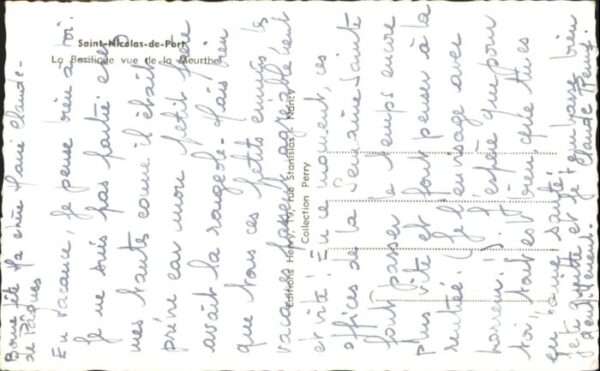 Saint-Nicolas-de-Port
La Basilique vue de la Meurthe
Editions Henry, 19, rue Stanislas, Nancy
Collection Perry
Bonne fête ma chère Marie Claude -
de Pâques
En vacance, je pense bien à toi.
Je ne suis pas partie
mes tantes comme il était
prévu car mon petit frère
avait la rougeole - Mais bien
que tous ces petits ennuis les
vacances passent agréablement
et vite ! En ce moment, ces
offices de la Semaine Sainte
font passer le temps encore
plus vite et font penser à la
rentrée. Je l'envisage avec
horreur ! J'espère que pour
toi, tout est bien, que tu es
en bonne santé.
Je te quitte et je t'embrasse bien
Claude